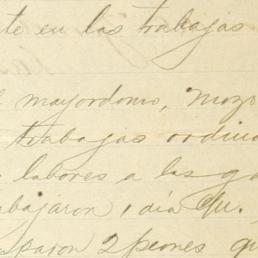 te en las trabajas
mayordomo, mozo
trabajas ordina
labores a las ga
abajaron 1 día c/u.
paron 2 peones qu